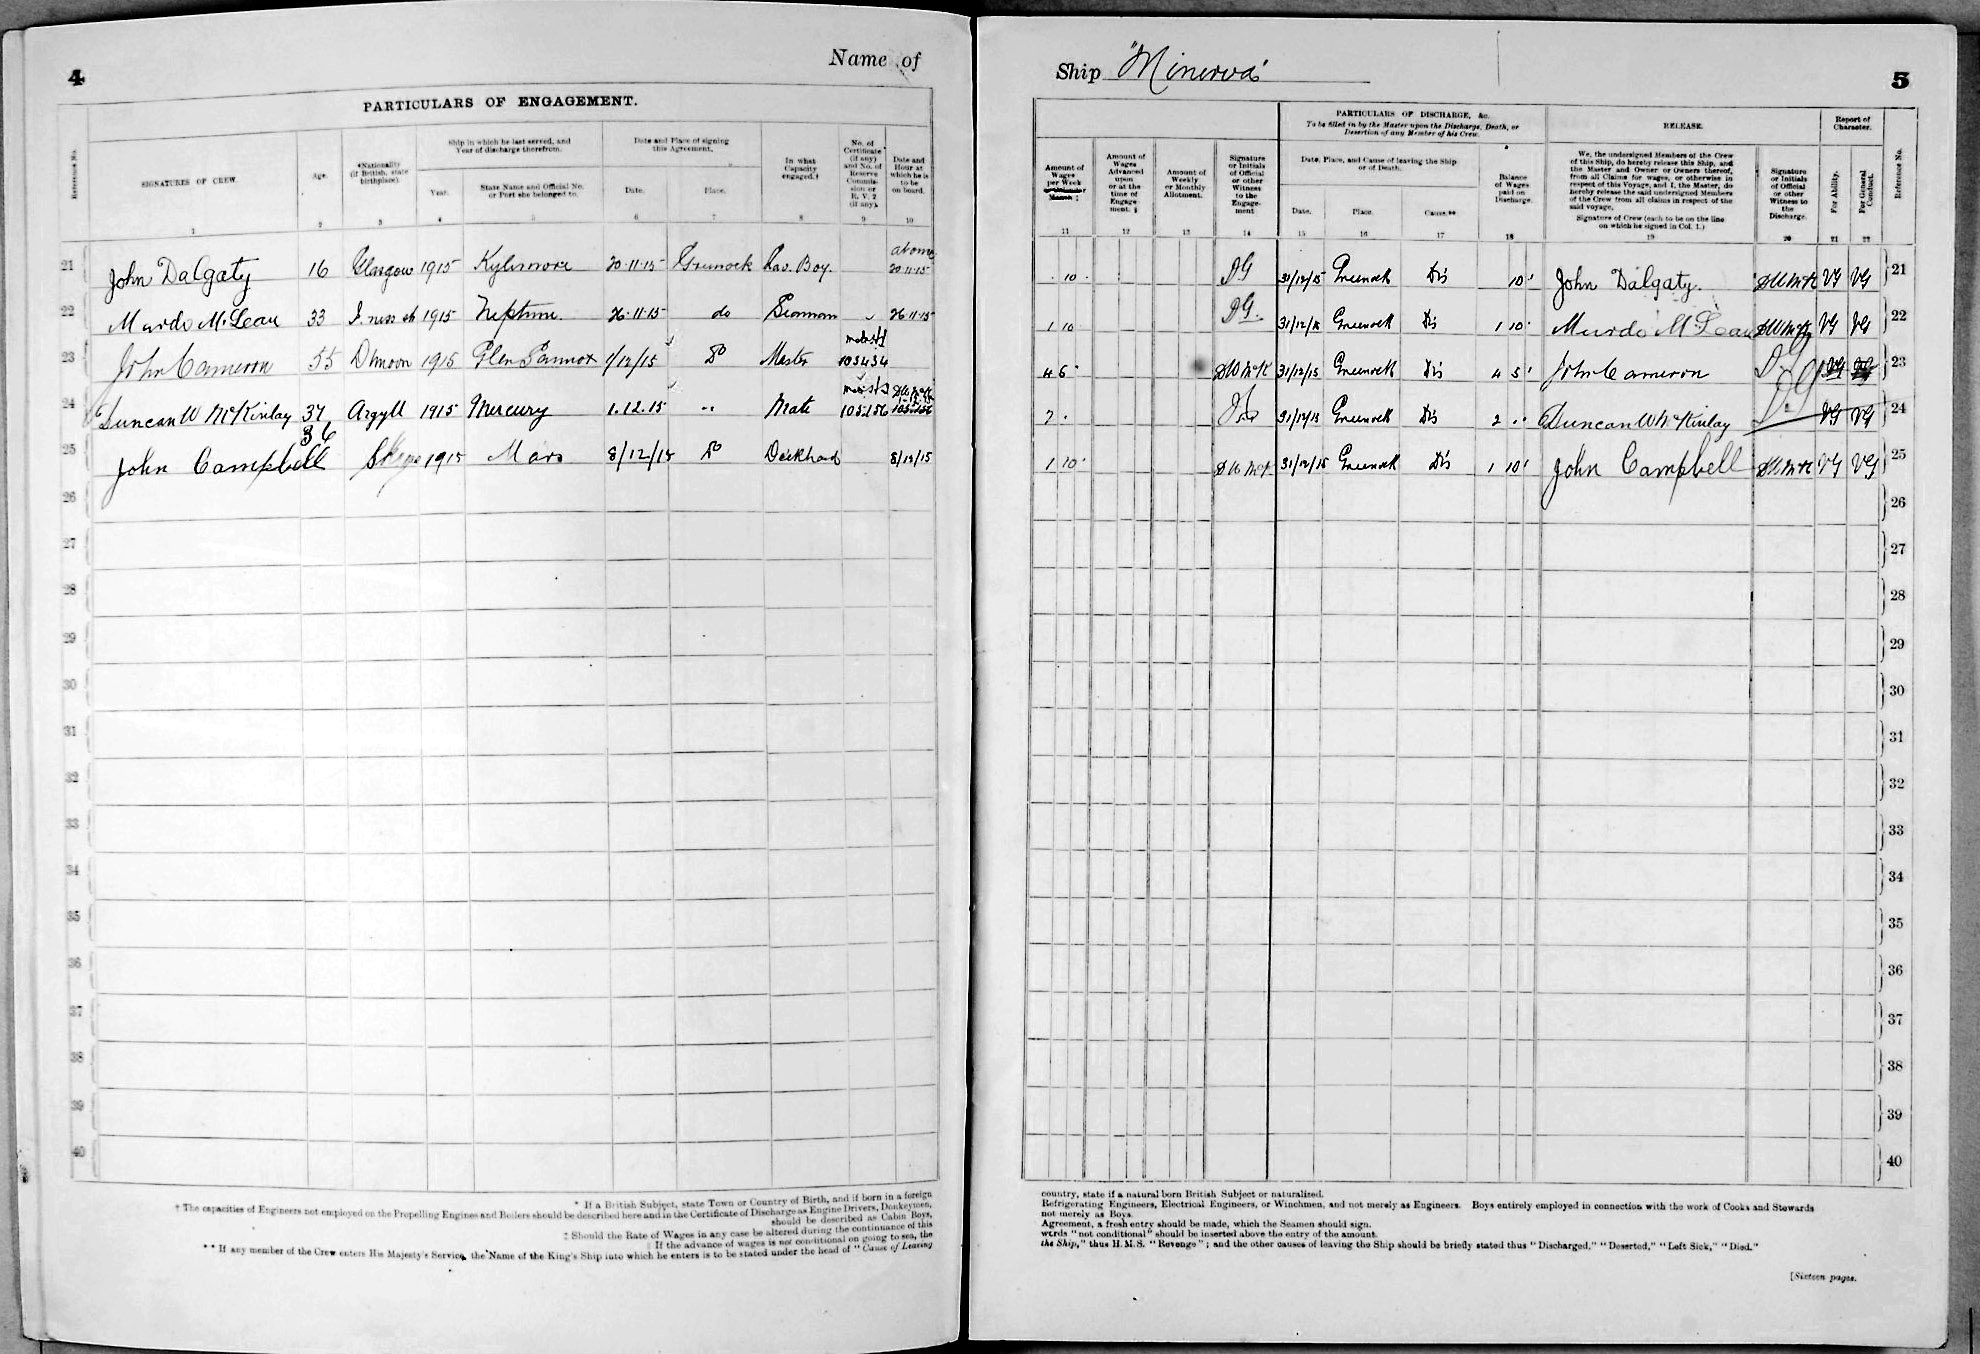 4
Name of
PARTICULARS OF ENGAGEMENT.
Reference No.
SIGNATURES OF CREW.
Age.
*Nationality (if British, state birthplace).
Ship in which he last served, and Year of discharge therefrom.
Year.
State Name and Official No. or Port she belonged to.
Date and Place of signing this Agreement.
Date.
Place.
In what Capacity engaged.†
No. of Certificate (if any) and No. of Reserve Commission or R. V. 2 (if any).
Date and Hour at which he is to be on board.
1 2 3 4 5 6 7 8 9 10
21 John Dalgaty 16 Glasgow 1915 Kylemore 20·11·15 Greenock Pav. Boy. at once 20·11·15
22 Murdo McLean 33 I. ness sh 1915 Neptune 26·11·15 do 26·11·15
23 John Cameron 55 Dunoon 1915 Glen Sannox 1/12/15 Do Master 103434
24 Duncan W McKinlay 37 Argyll 1915 Mercury 1.12.15 " Mate 105156
25 John Campbell 36 Skye 1915 Mars 8/12/15 Do Deckhand 8/12/15
26
27
28
29
30
31
32
33
34
35
36
37
38
39
40
* If a British Subject, state Town or Country of Birth, and if born in a foreign
† The capacities of Engineers not employed on the Propelling Engines and Boilers should be described here and in the Certificate of Discharge as Engine Drivers, Donkeymen,
should be described as Cabin Boys,
‡ Should the Rate of Wages in any case be altered during the continuance of this
If the advance of wages is not conditional on going to sea, the
** If any member of the Crew enters His Majesty's Service, the Name of the King's Ship into which he enters is to be stated under the head of "Cause of Leaving
Ship "Minerva"
5
Amount of Wages per Week
Amount of Wages Advanced upon or at the time of Engagement. §
Amount of Weekly or Monthly Allotment.
Signature or Initials of Official or other Witness to the Engagement
PARTICULARS OF DISCHARGE, &c.
To be filled in by the Master upon the Discharge, Death, or Desertion of any Member of his Crew.
Date, Place, and Cause of leaving the Ship or of Death.
Date.
Place.
Cause.**
Balance of Wages paid on Discharge.
RELEASE.
We, the undersigned Members of the Crew
of this Ship, do hereby release this Ship, and
the Master and Owner or Owners thereof,
from all Claims for wages, or otherwise in
respect of this Voyage, and I, the Master, do
hereby release the said undersigned Members
of the Crew from all claims in respect of the
said voyage.
Signature of Crew (each to be on the line on which he signed in Col. 1.)
Signature or Initials of Official or other Witness to the Discharge.
Report of Character.
For Ability.
For General Conduct.
Reference No.
11 12 13 14 15 16 17 18 19 20 21 22
10 DG 31/12/15 Greenock Dis 10 John Dalgaty. DWMcK VG VG 21
1 10 DG. 31/12/15 Greenock Dis 1 10 Murdo McLean DWMcK VG VG 22
4 5 DWMcK 31/12/15 Greenock Dis 4 5 John Cameron DG VG VG 23
2 31/12/15 Greenock Dis 2 Duncan W McKinlay DG VG VG 24
1 10 DWMcK 31/12/15 Greenock Dis 1 10 John Campbell DWMcK VG VG 25
26
27
28
29
30
31
32
33
34
35
36
37
38
39
40
country, state if a natural born British Subject or naturalized.
Refrigerating Engineers, Electrical Engineers, or Winchmen, and not merely as Engineers. Boys entirely employed in connection with the work of Cooks and Stewards
not merely as Boys.
Agreement, a fresh entry should be made, which the Seamen should sign.
words "not conditional" should be inserted above the entry of the amount.
the Ship," thus H.M.S. "Revenge"; and the other causes of leaving the Ship should be briefly stated thus "Discharged," "Deserted," "Left Sick," "Died."
[Sixteen pages.